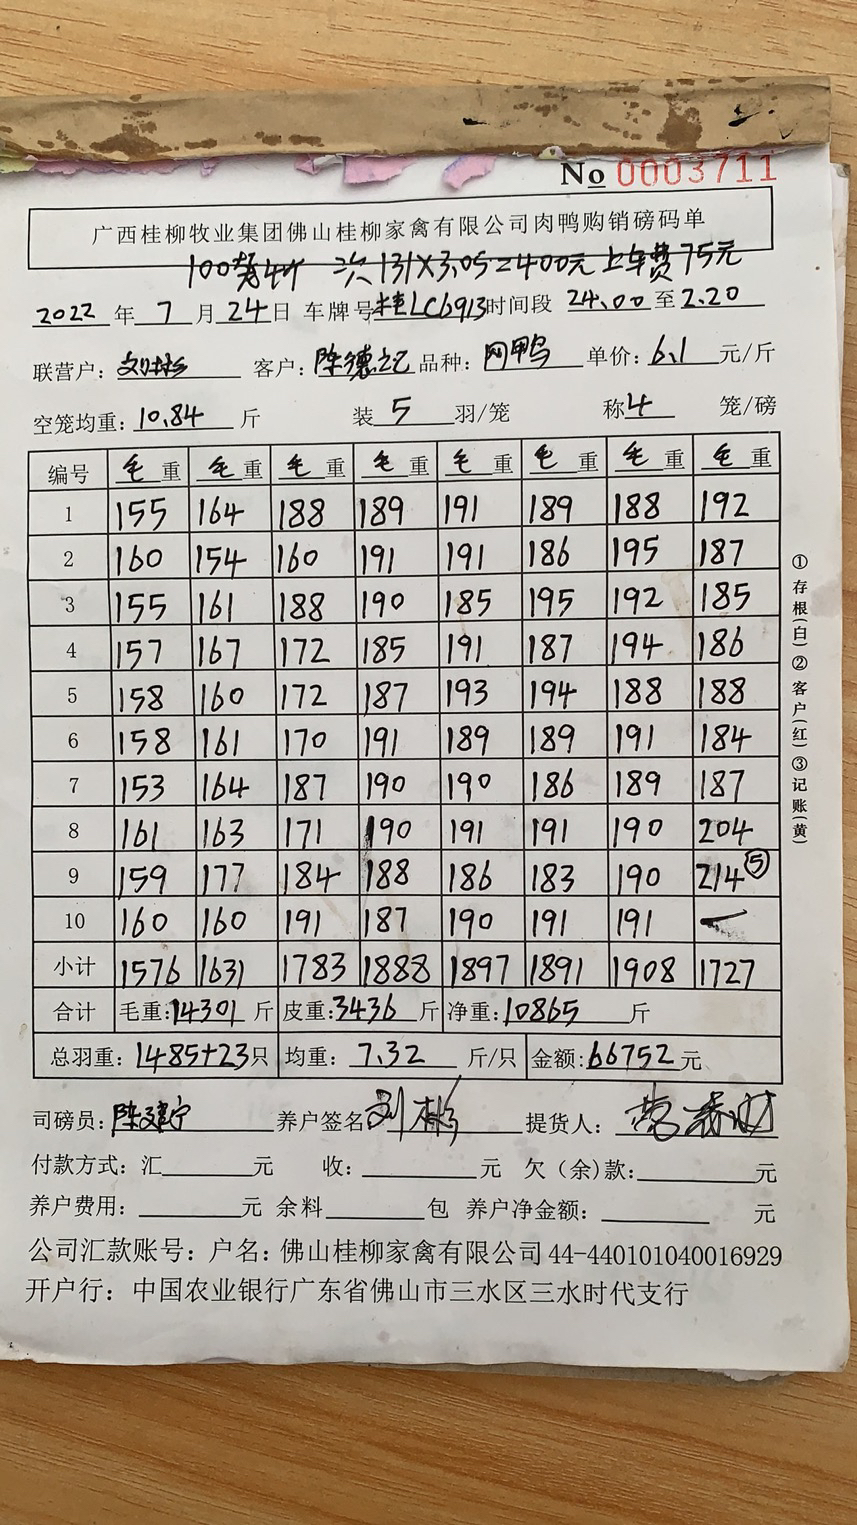 No 0003711
广西桂柳牧业集团佛山桂柳家禽有限公司肉鸭购销磅码单
次131X3.05=400元 上车费75元
2022年7月24日 车牌号桂LC6913时间段 24.00至2.20
联营户：刘彬 客户：陈德记 品种：网鸭 单价：6.1元/斤
空笼均重：10.84斤 装5羽/笼 称4笼/磅
编号 毛重 毛重 毛重 毛重 毛重 毛重 毛重 毛重
1 155 164 188 189 191 189 188 192
2 160 154 160 191 191 186 195 187
3 155 161 188 190 185 195 192 185
4 157 167 172 185 191 187 194 186
5 158 160 172 187 193 194 188 188
6 158 161 170 191 189 189 191 184
7 153 164 187 190 190 186 189 187
8 161 163 171 190 191 191 190 204
9 159 177 184 188 186 183 190 214⑤
10 160 160 191 187 190 191 191
小计 1576 1631 1783 1888 1897 1891 1908 1727
合计 毛重：14301斤 皮重：3436斤 净重：10865斤
总羽重：1485+23只 均重：7.32斤/只 金额：66752元
司磅员：陈建宁 养户签名 刘彬 提货人：
付款方式：汇 元 收： 元 欠（余）款： 元
养户费用： 元 余料 包 养户净金额： 元
公司汇款账号：户名：佛山桂柳家禽有限公司44-440101040016929
开户行：中国农业银行广东省佛山市三水区三水时代支行
①存根(白)②客户(红)③记账(黄)